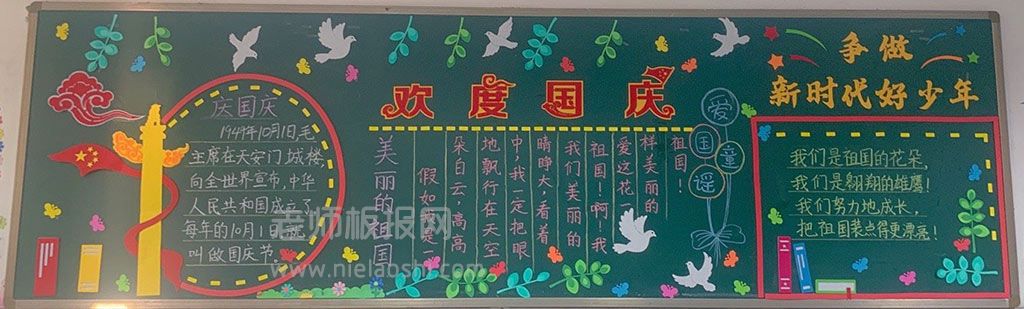 欢度国庆
争做
新时代好少年
庆国庆
1949年10月1日,毛
主席在天安门城楼,
向全世界宣布,中华
人民共和国成立了,
每年的10月1日就
叫做国庆节。
美丽的祖国
假如我是一
朵白云,高高
地飘行在天空
中,我一定把眼
睛睁大,看着
我们美丽的
祖国!啊!我
爱这花一
样美丽的
祖国!
爱国童谣
我们是祖国的花朵,
我们是翱翔的雄鹰!
我们努力地成长,
把祖国装点得更漂亮!
老师板报网
www.nielaoshi.com